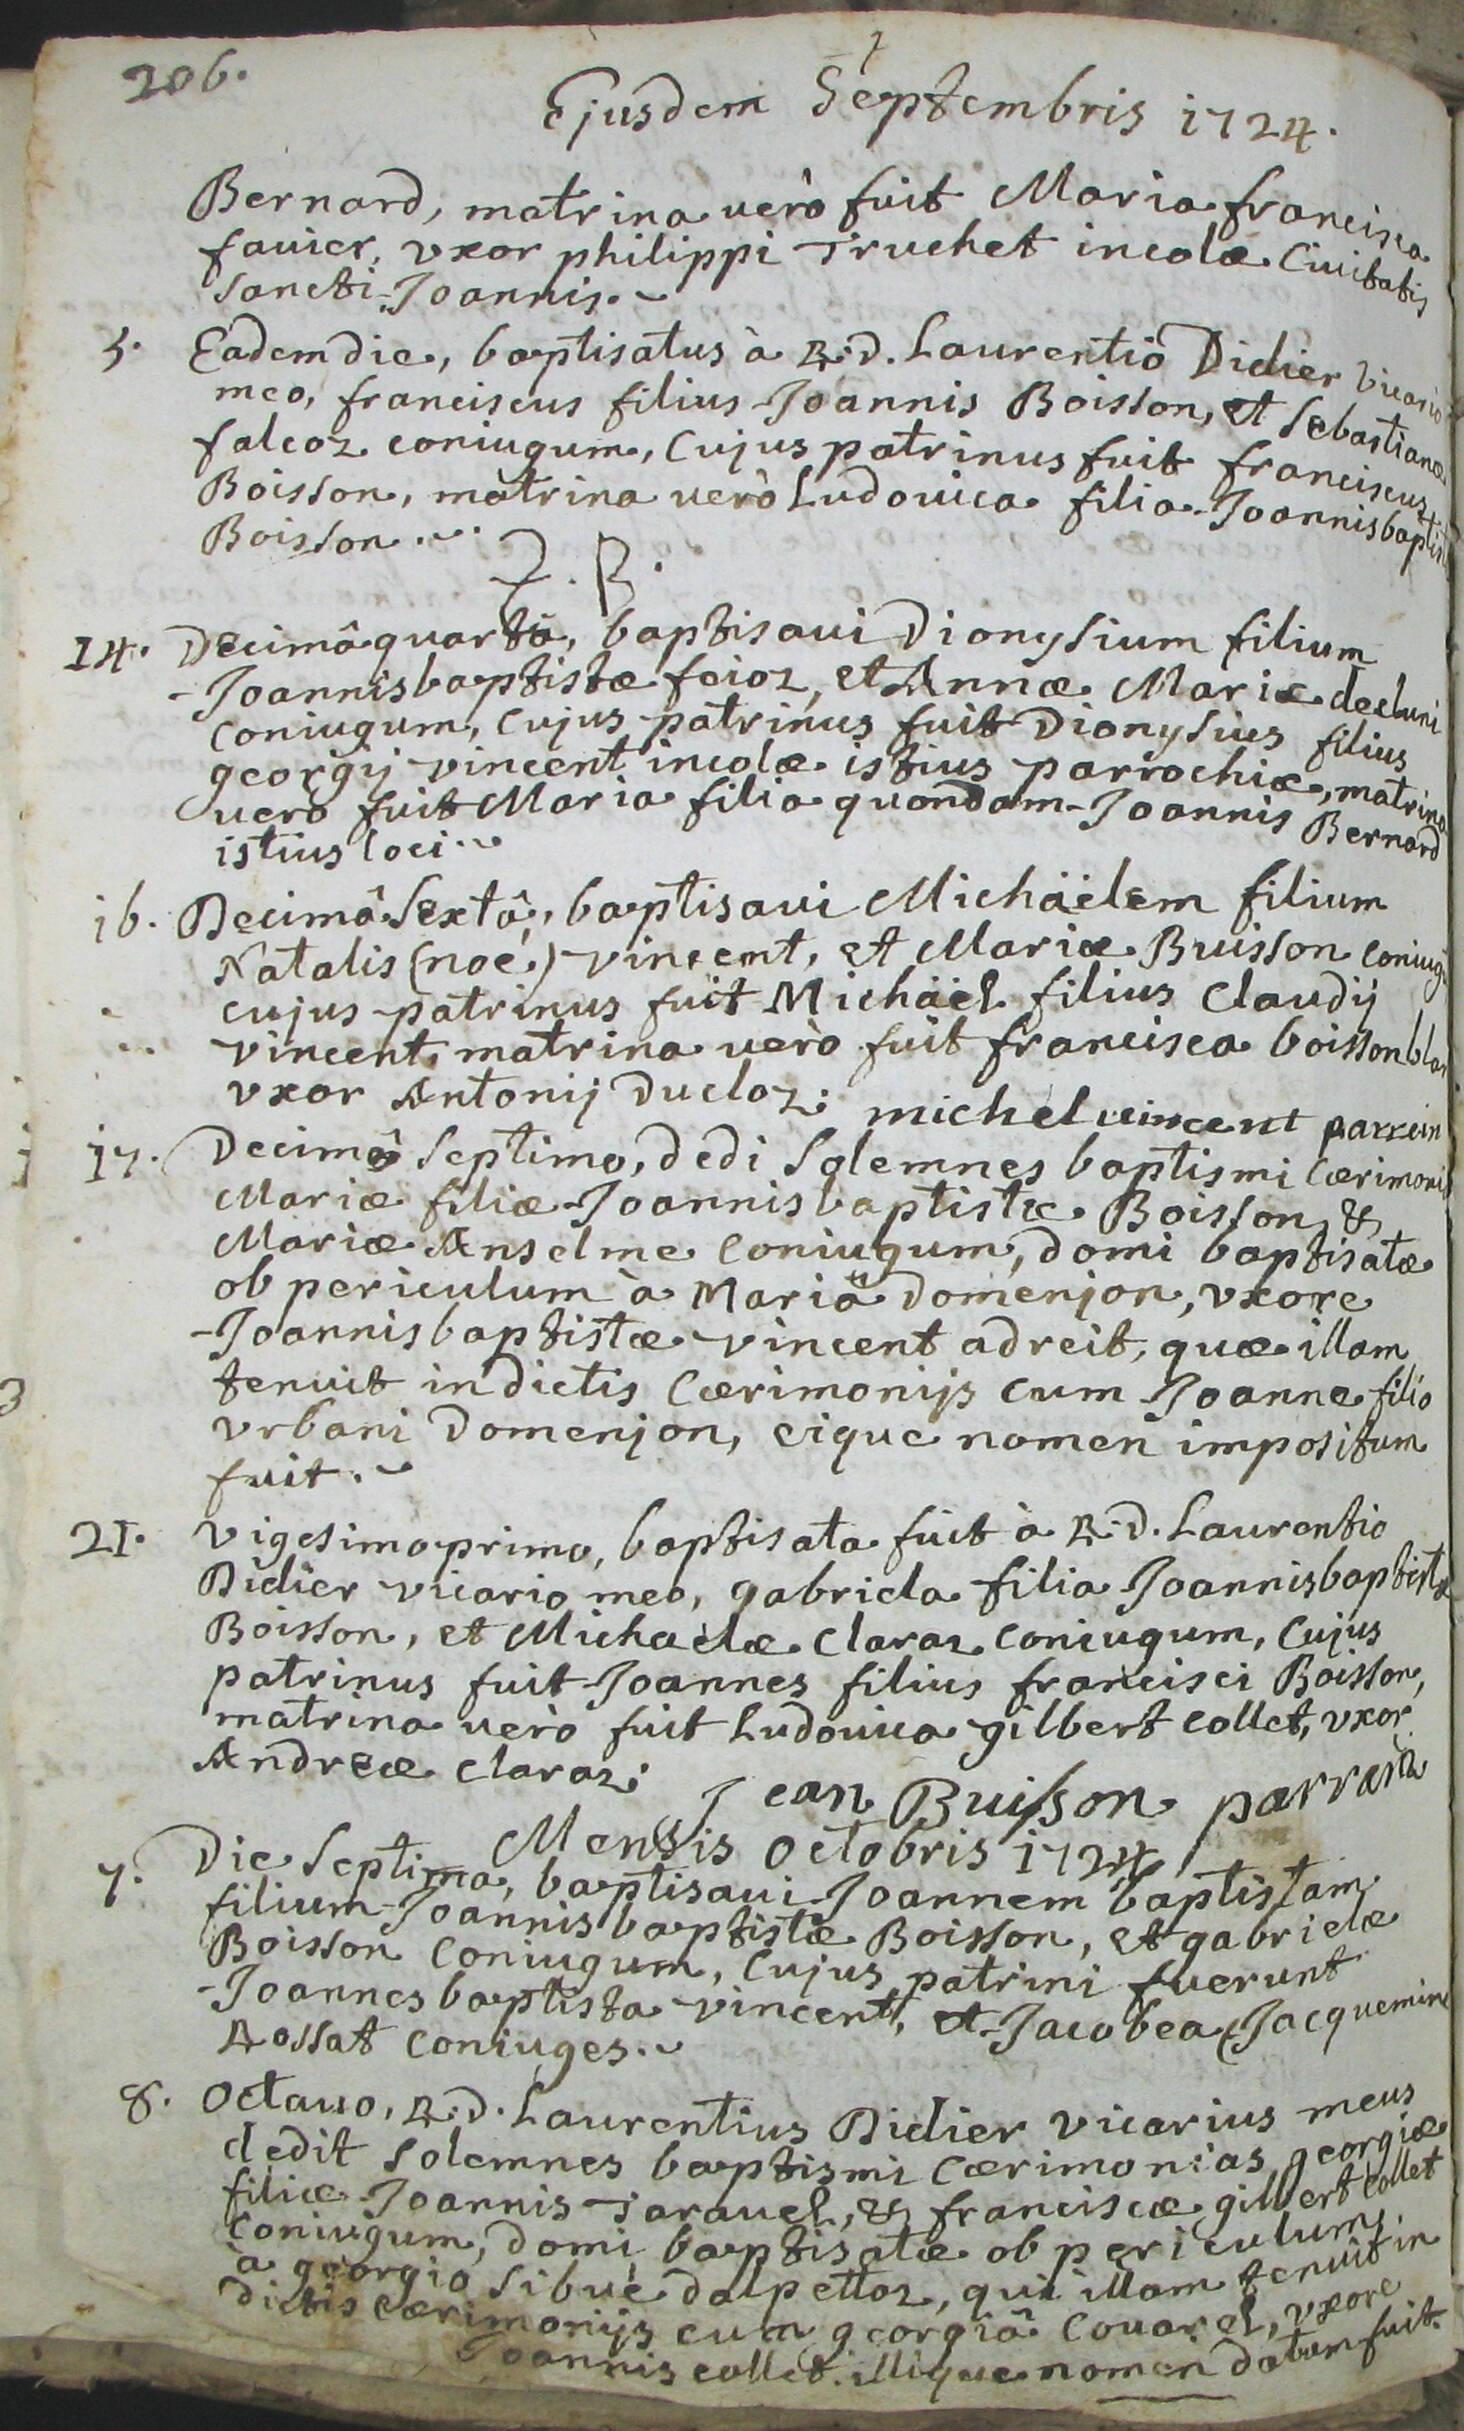 206.
Ejusdem Septembris 1724.
Bernard, matrina verò fuit Maria francisca
favier, vxor philippi Truchet incolæ Civitatis
sancti Joannis.
5. Eadem die, baptisatus à R.D. Laurentio Didier vicario
meo, franciscus filius Joannis Boisson, et Sebastianæ
falcoz coniugum, Cujus patrinus fuit franciscus
Boisson, matrina verò Ludovica filia Joannisbaptistæ
Boisson.
J. B.
14. Decimâ quartâ, baptisavi Dionysium filium
Joannisbaptistæ feioz, et Annæ Mariæ decluni
coniugum, cujus patrinus fuit Dionysius filius
georgij vincent incolæ istius parrochiæ, matrina
uerò fuit Maria filia quondam Joannis Bernard
istius loci.
16. Decimâ Sextâ, baptisaui Michäelem filium
Natalis (noé) vincent, et Mariæ Buisson coniug.
cujus patrinus fuit Michäel filius Claudij
vincent, matrina uerò fuit francisca boisson blan
vxor Antonij Ducloz. michel vincent parrein
17. Decimâ Septima, dedi Solemnes baptismi Cærimonias
Mariæ filiæ Joannisbaptistæ Boisson, &
Mariæ Anselme Coniugum, domi baptisatæ
ob periculum à Mariâ domenjon, vxore
Joannisbaptistæ vincent adreit, quæ illam
tenuit in dictis Cærimonijs cum Joanne filio
vrbani Domenjon, eique nomen impositum
fuit.
21. Vigesima prima, baptisata fuit à R.D. Laurentio
Didier vicario meo, gabriela filia Joannisbaptistæ
Boisson, et Michaelæ Claraz coniugum, Cujus
patrinus fuit Joannes filius francisci Boisson,
matrina uerò fuit Ludovica gilbert collet, vxor
Andreæ claraz. Jean Buisson parrain
Mensis Octobris 1724
7. Die Septima, baptisaui Joannem baptistam
filium Joannisbaptistæ Boisson, et gabrielæ
Boisson Coniugum, Cujus patrini fuerunt
Joannes baptista vincent, et Jacobea (Jacquemine
Rossat coniuges.
8. Octavo, R.D. Laurentius Didier vicarius meus
dedit Solemnes baptismi Cærimonias georgiæ
filiæ Joannis Taravel, & franciscæ gilbert collet
Coniugum, domi baptisatæ ob periculum,
à georgio Sibué dalpettaz, qui illam tenuit in
dictis Cærimonijs cum georgiâ Covarel, vxore
Joannis collet. illique nomen datum fuit.